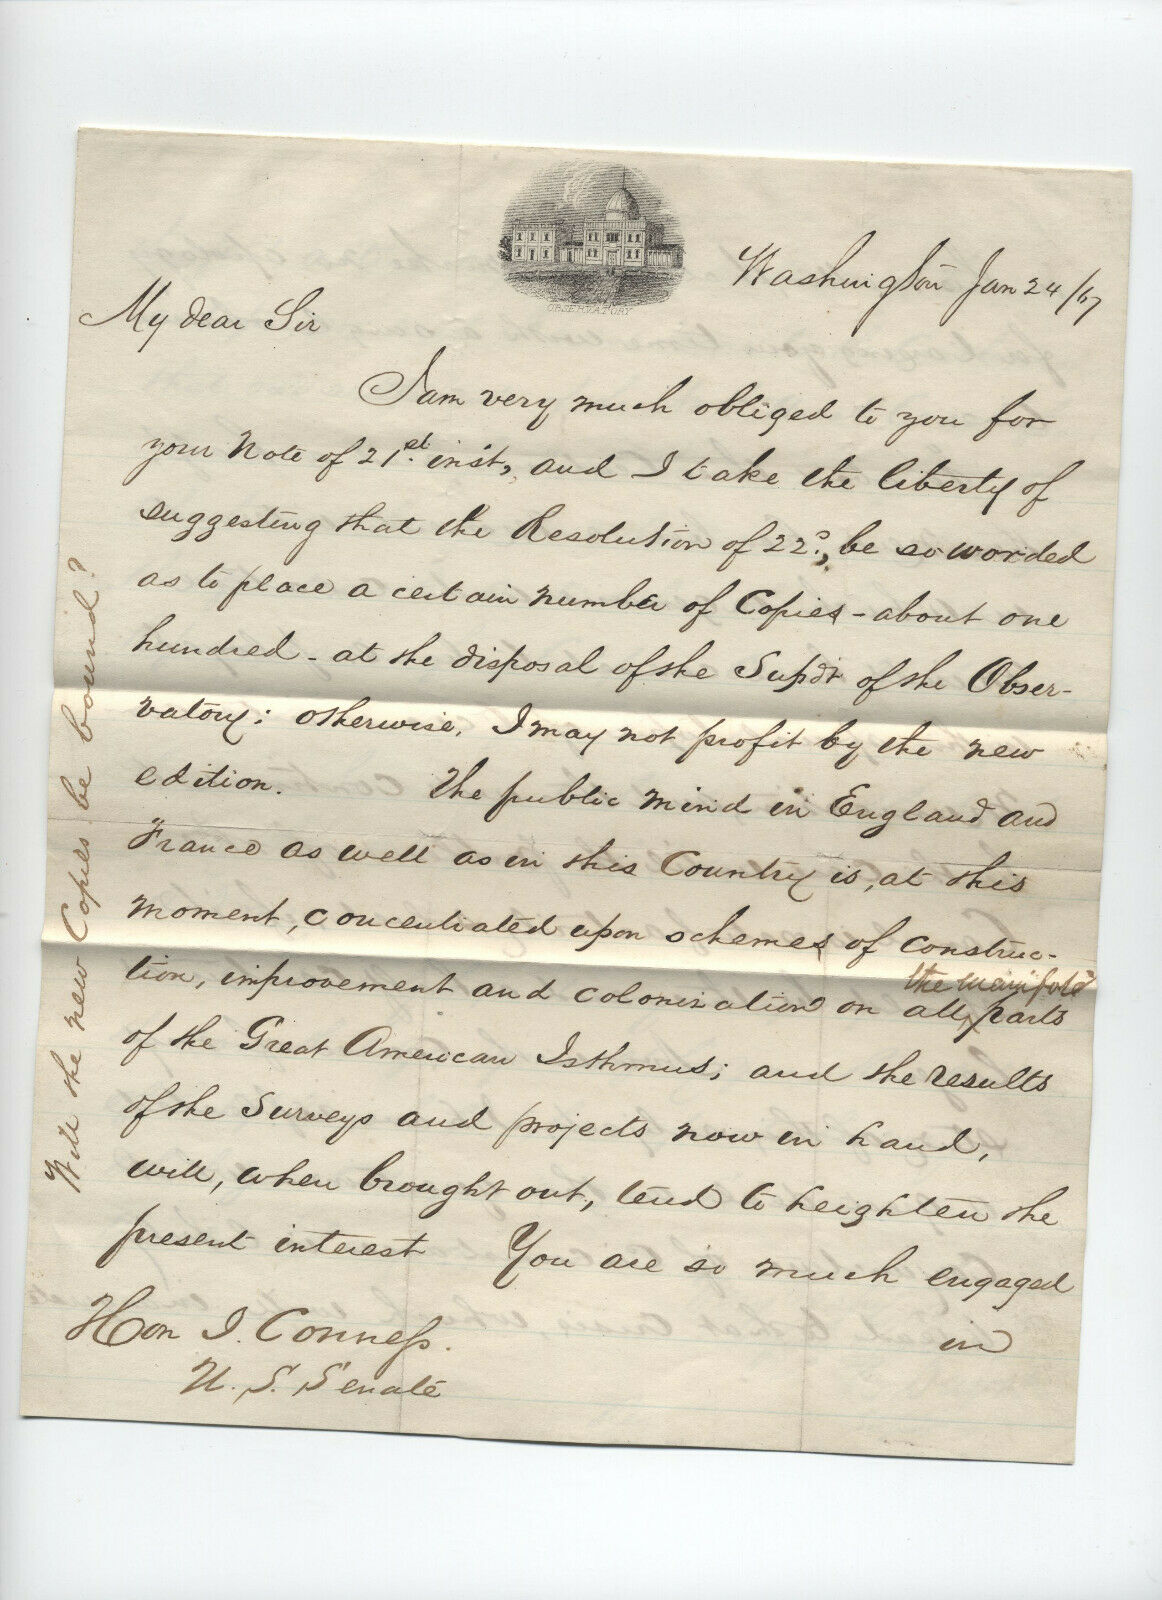 OBSERVATORY
Washington Jan 24/67
My dear Sir
I am very much obliged to you for
your Note of 21st. inst, and I take the liberty of
suggesting that the Resolution of 22d., be so worded
as to place a certain number of Copies - about one
hundred - at the disposal of the Supdt of the Obser-
vatory; otherwise, I may not profit by the new
edition. The public mind in England and
France as well as in this Country is, at this
moment, concentrated upon schemes of construc-
the manifold
tion, improvement and colonization on all parts
of the Great American Isthmus; and the results
of the Surveys and projects now in hand,
will, when brought out, tend to heighten the
present interest You are so much engaged
in
Hon J. Conness.
U. S. Senate
Will the new Copies be bound?